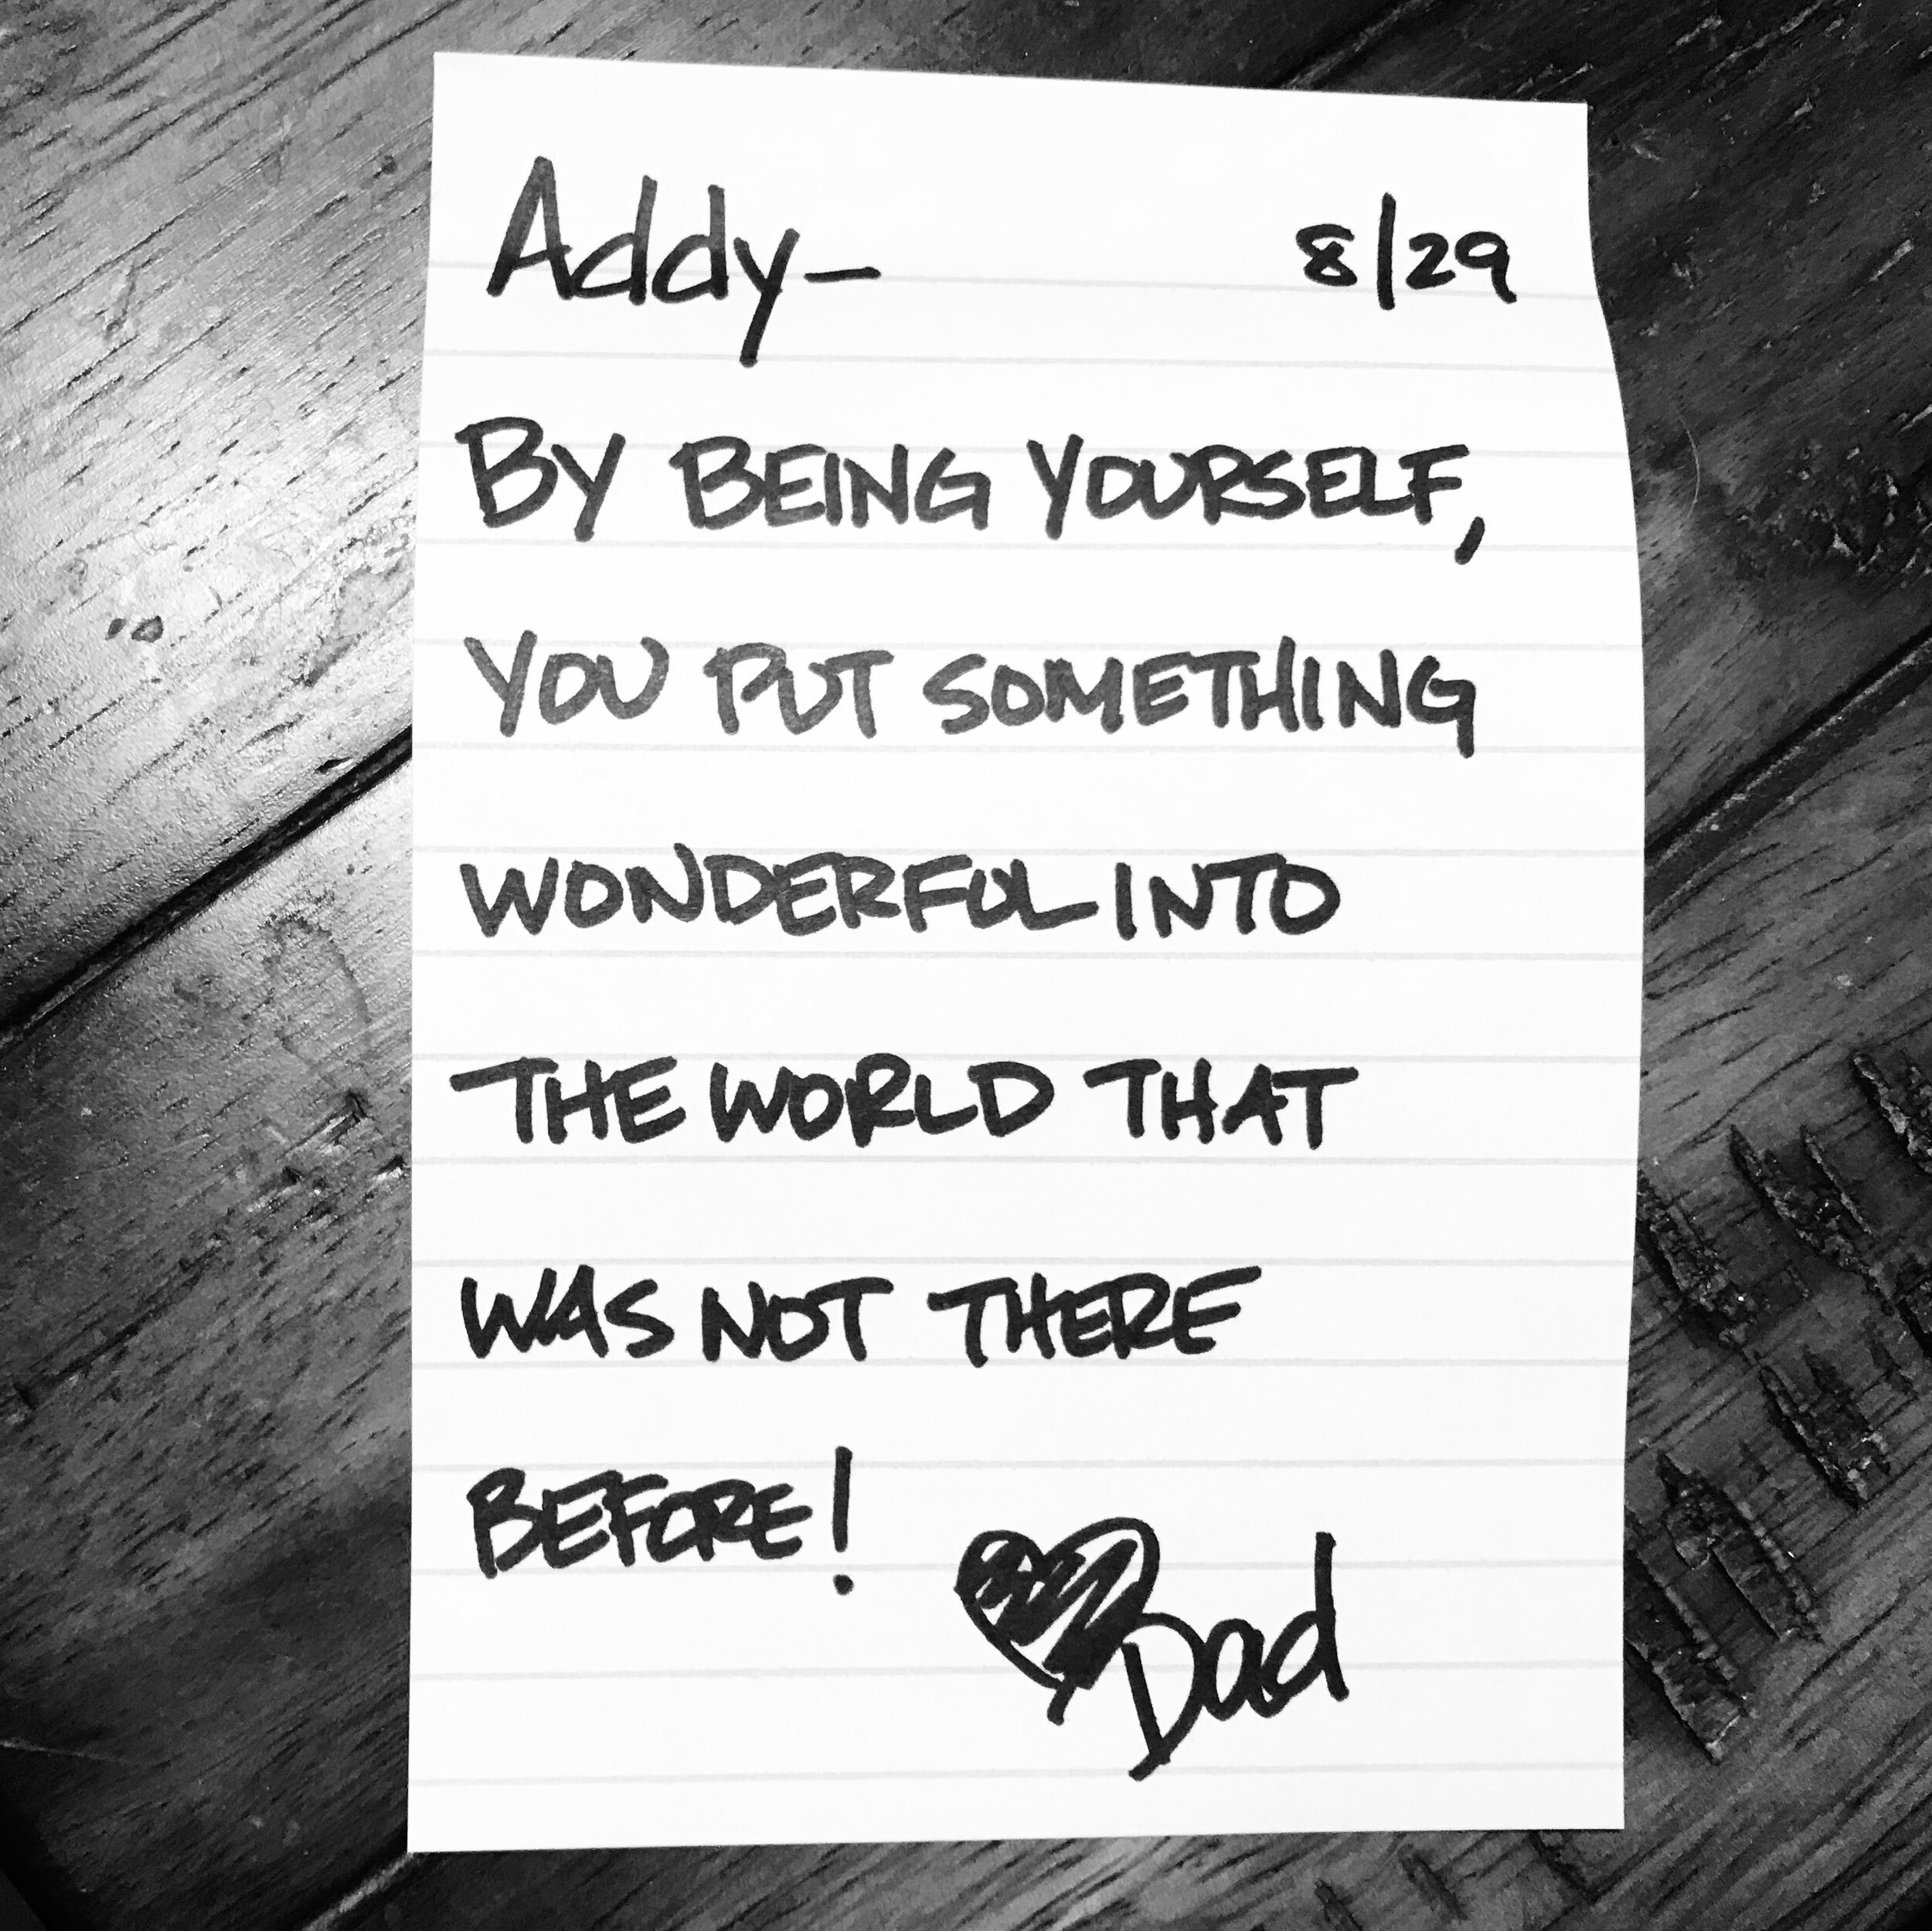 Addy- 8/29
BY BEING YOURSELF,
YOU PUT SOMETHING
WONDERFUL INTO
THE WORLD THAT
WAS NOT THERE
BEFORE!
Dad